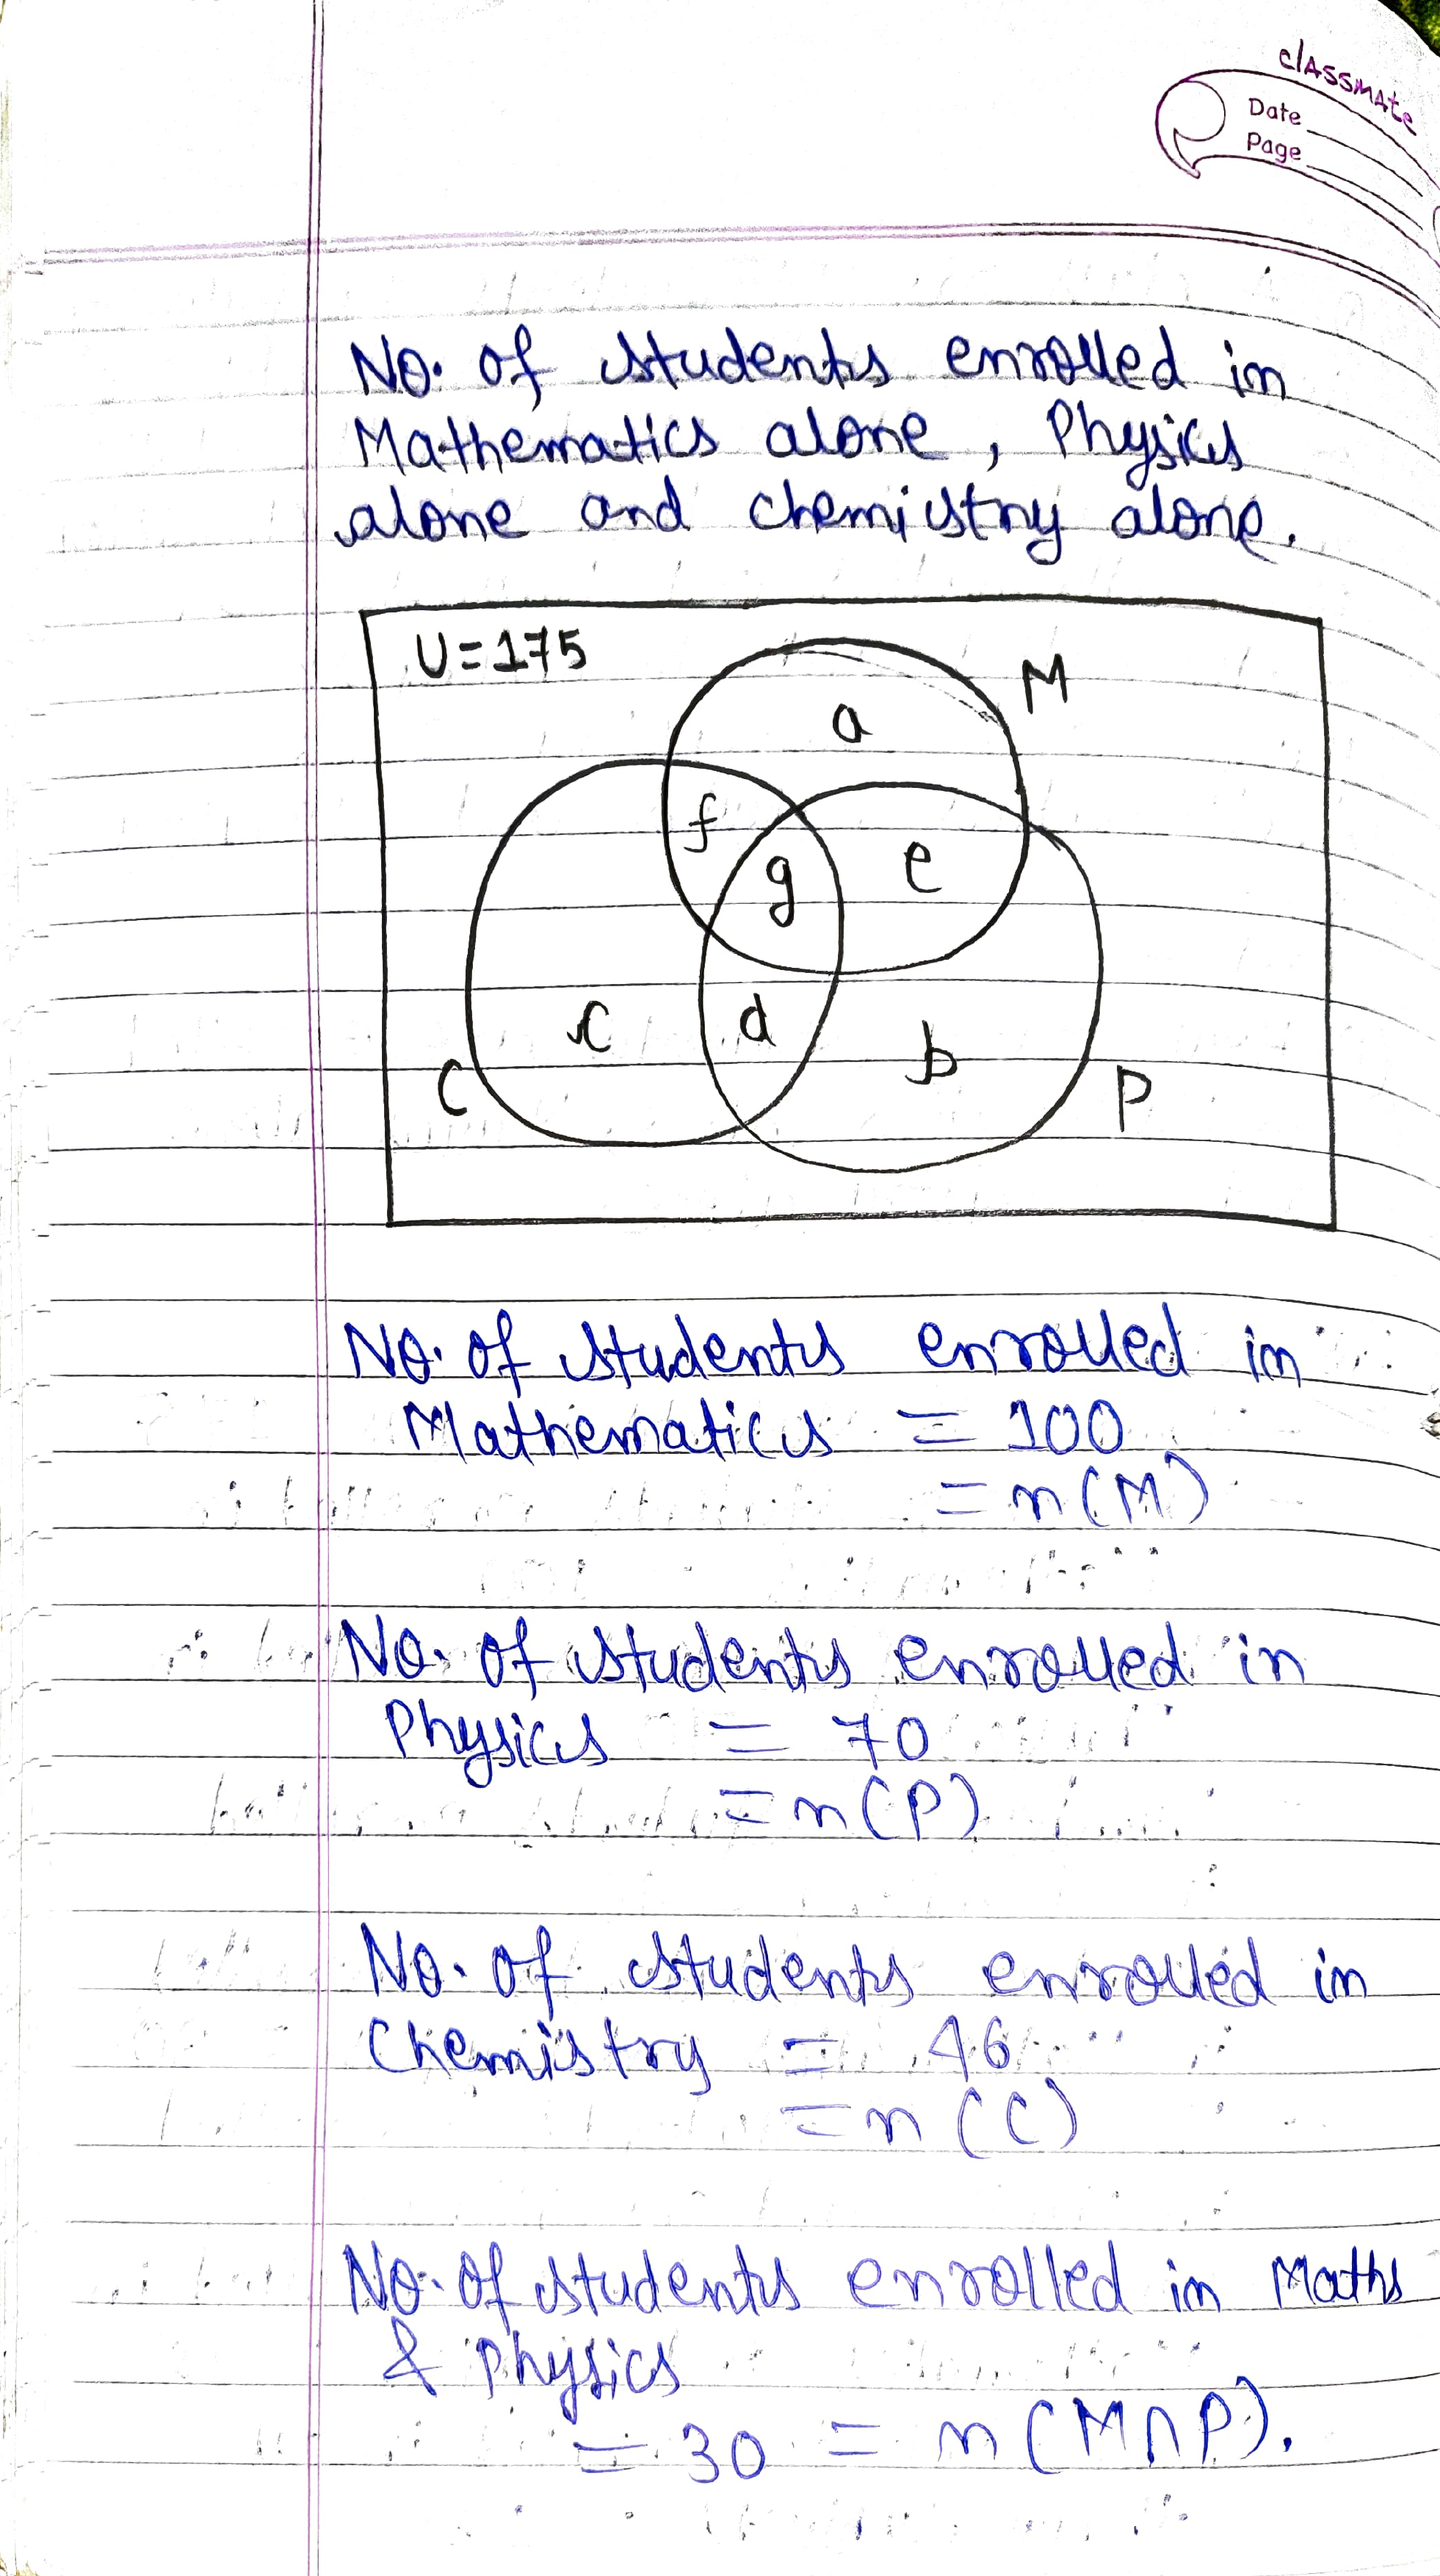 classmate
Date
Page
No. of students enrolled in
Mathematics alone, Physics
alone and chemistry alone.
U=175
M
a
f
g
e
c
d
b
C
P
No. of students enrolled in
Mathematics = 100
= n(M)
No. of students enrolled in
Physics = 70
= n(P)
No. of students enrolled in
Chemistry = 46
= n(C)
No. of students enrolled in Maths
& physics
= 30 = n(M∩P).